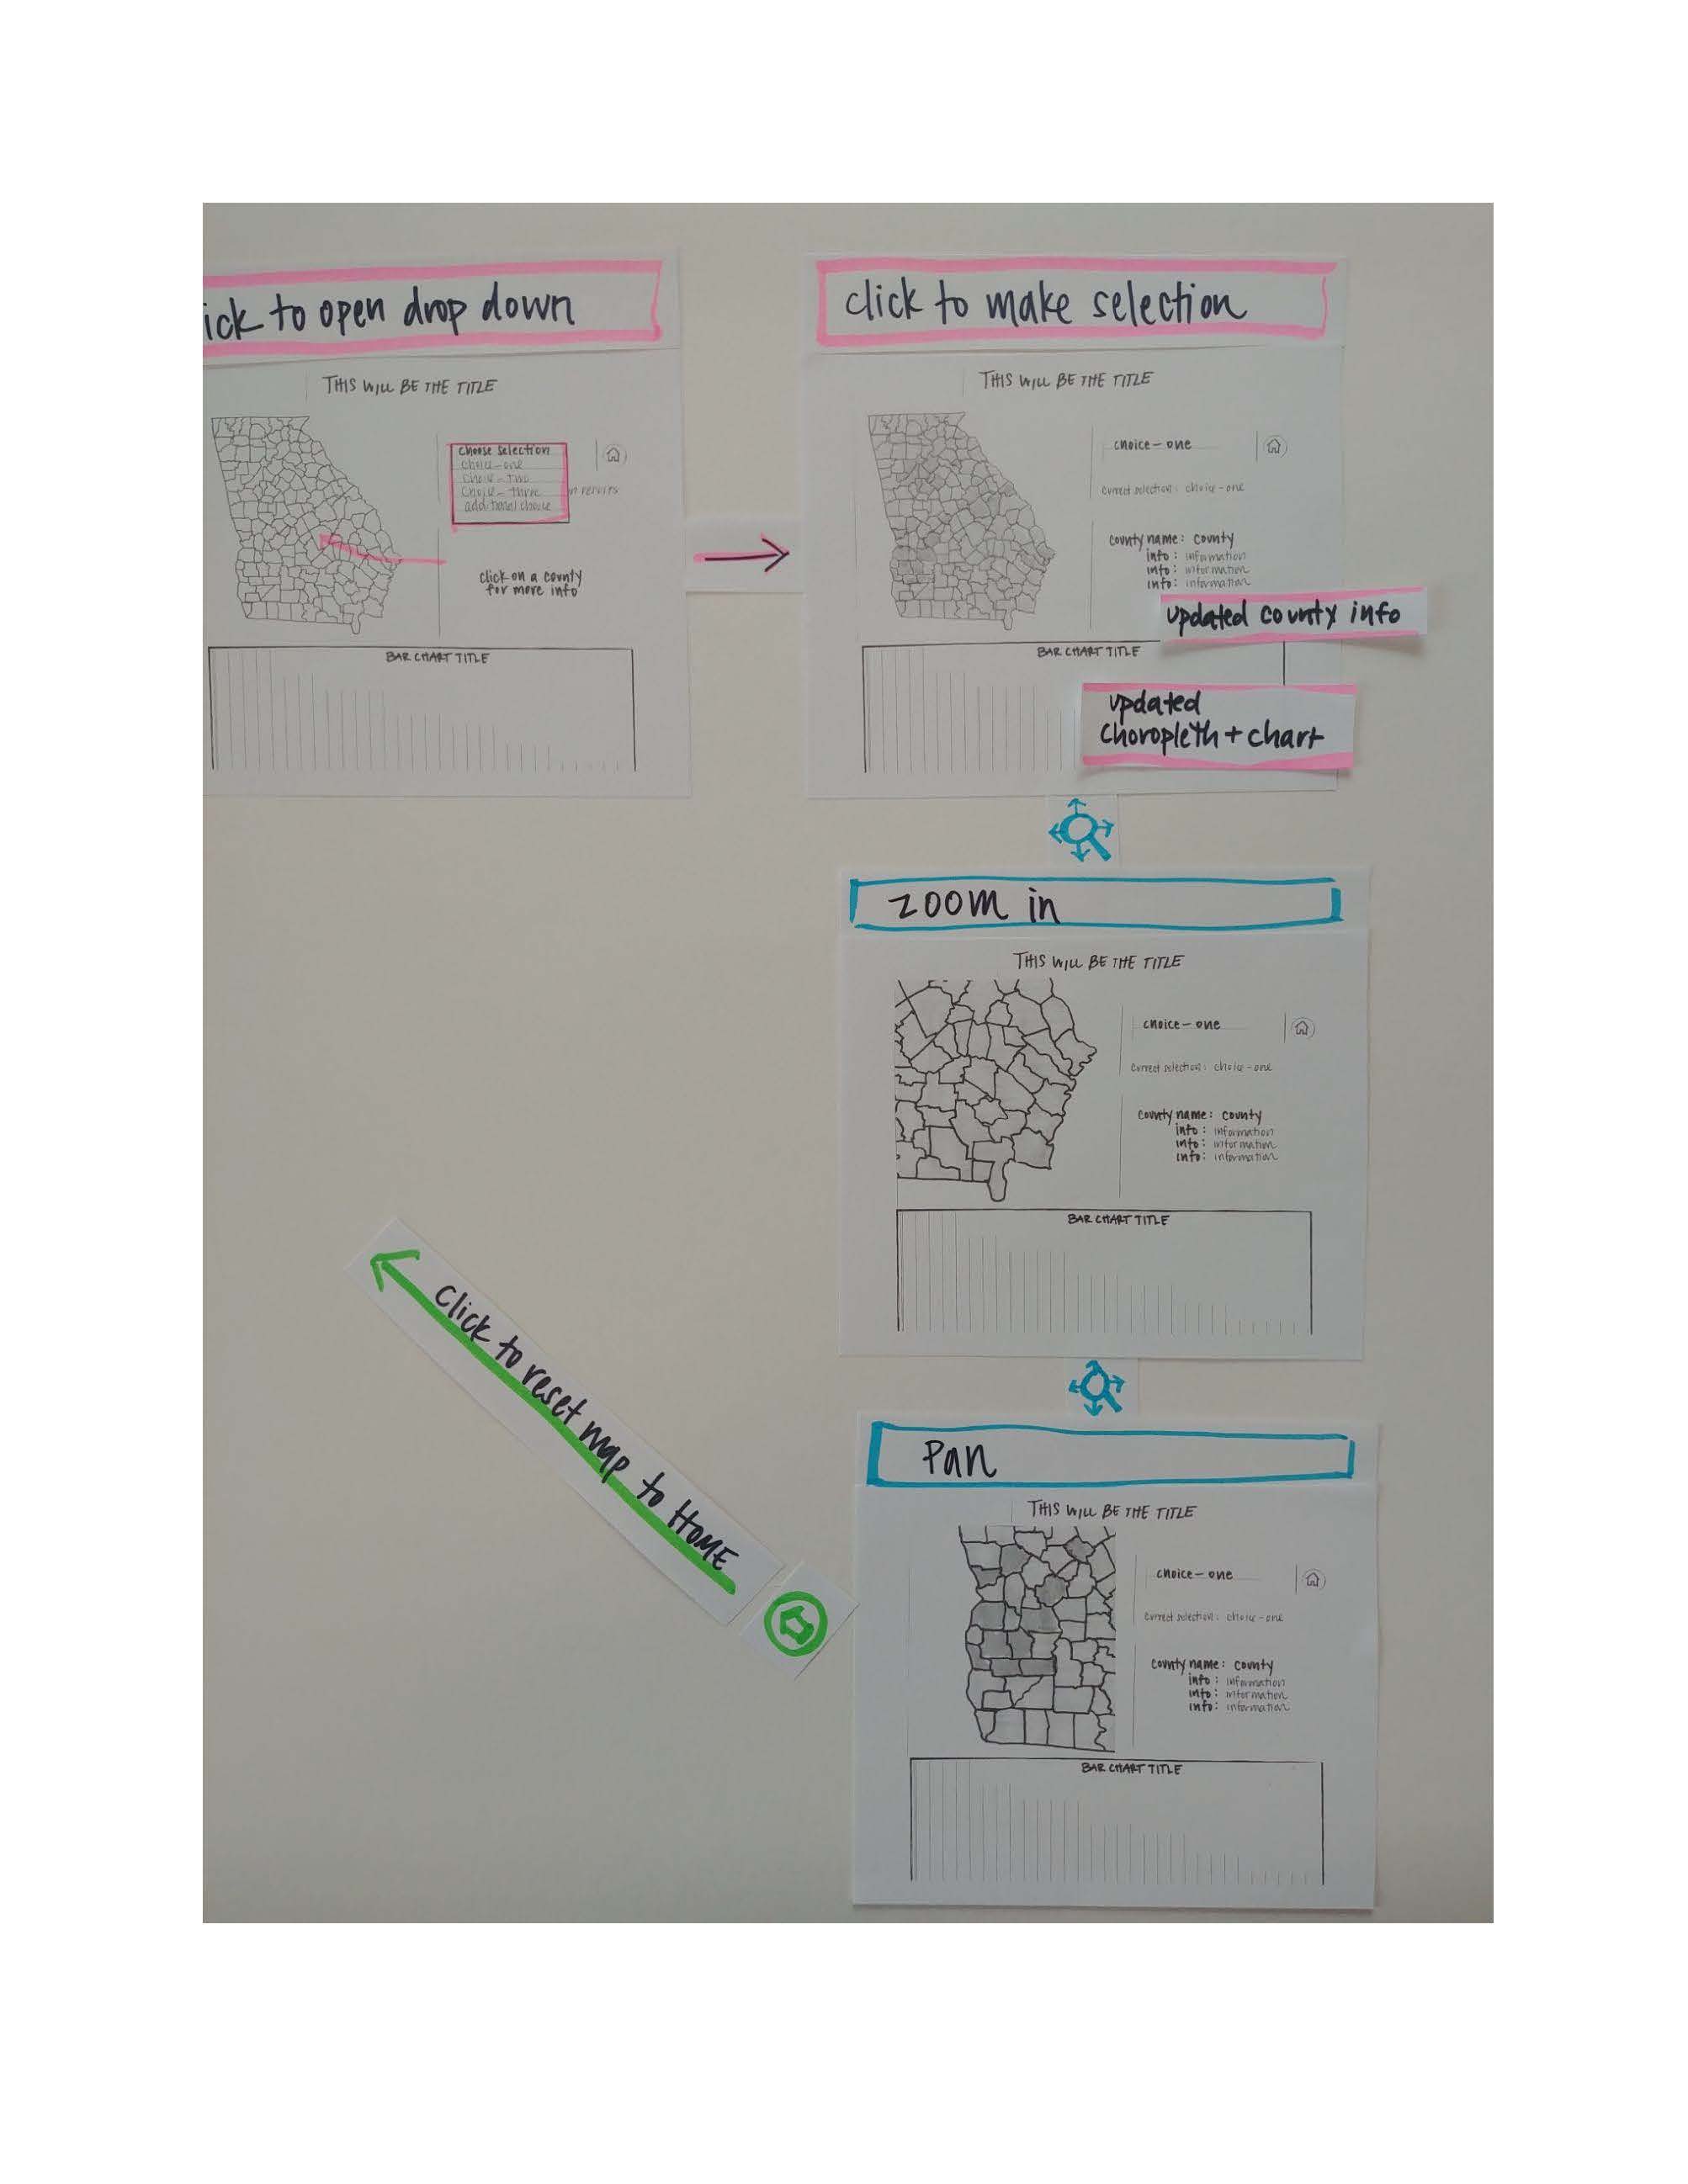 ick to open drop down
THIS WILL BE THE TITLE
choose selection
choice-one
choice-two
choice-three
additional choice
click on a county
for more info
BAR CHART TITLE
click to make selection
THIS WILL BE THE TITLE
choice-one
selection: choice-one
county name: county
info: information
info: information
info: information
updated county info
BAR CHART TITLE
updated
choropleth + chart
zoom in
THIS WILL BE THE TITLE
choice-one
selection: choice-one
county name: county
info: information
info: information
info: information
BAR CHART TITLE
Click to reset map to HOME
Pan
THIS WILL BE THE TITLE
choice-one
selection: choice-one
county name: county
info: information
info: information
info: information
BAR CHART TITLE